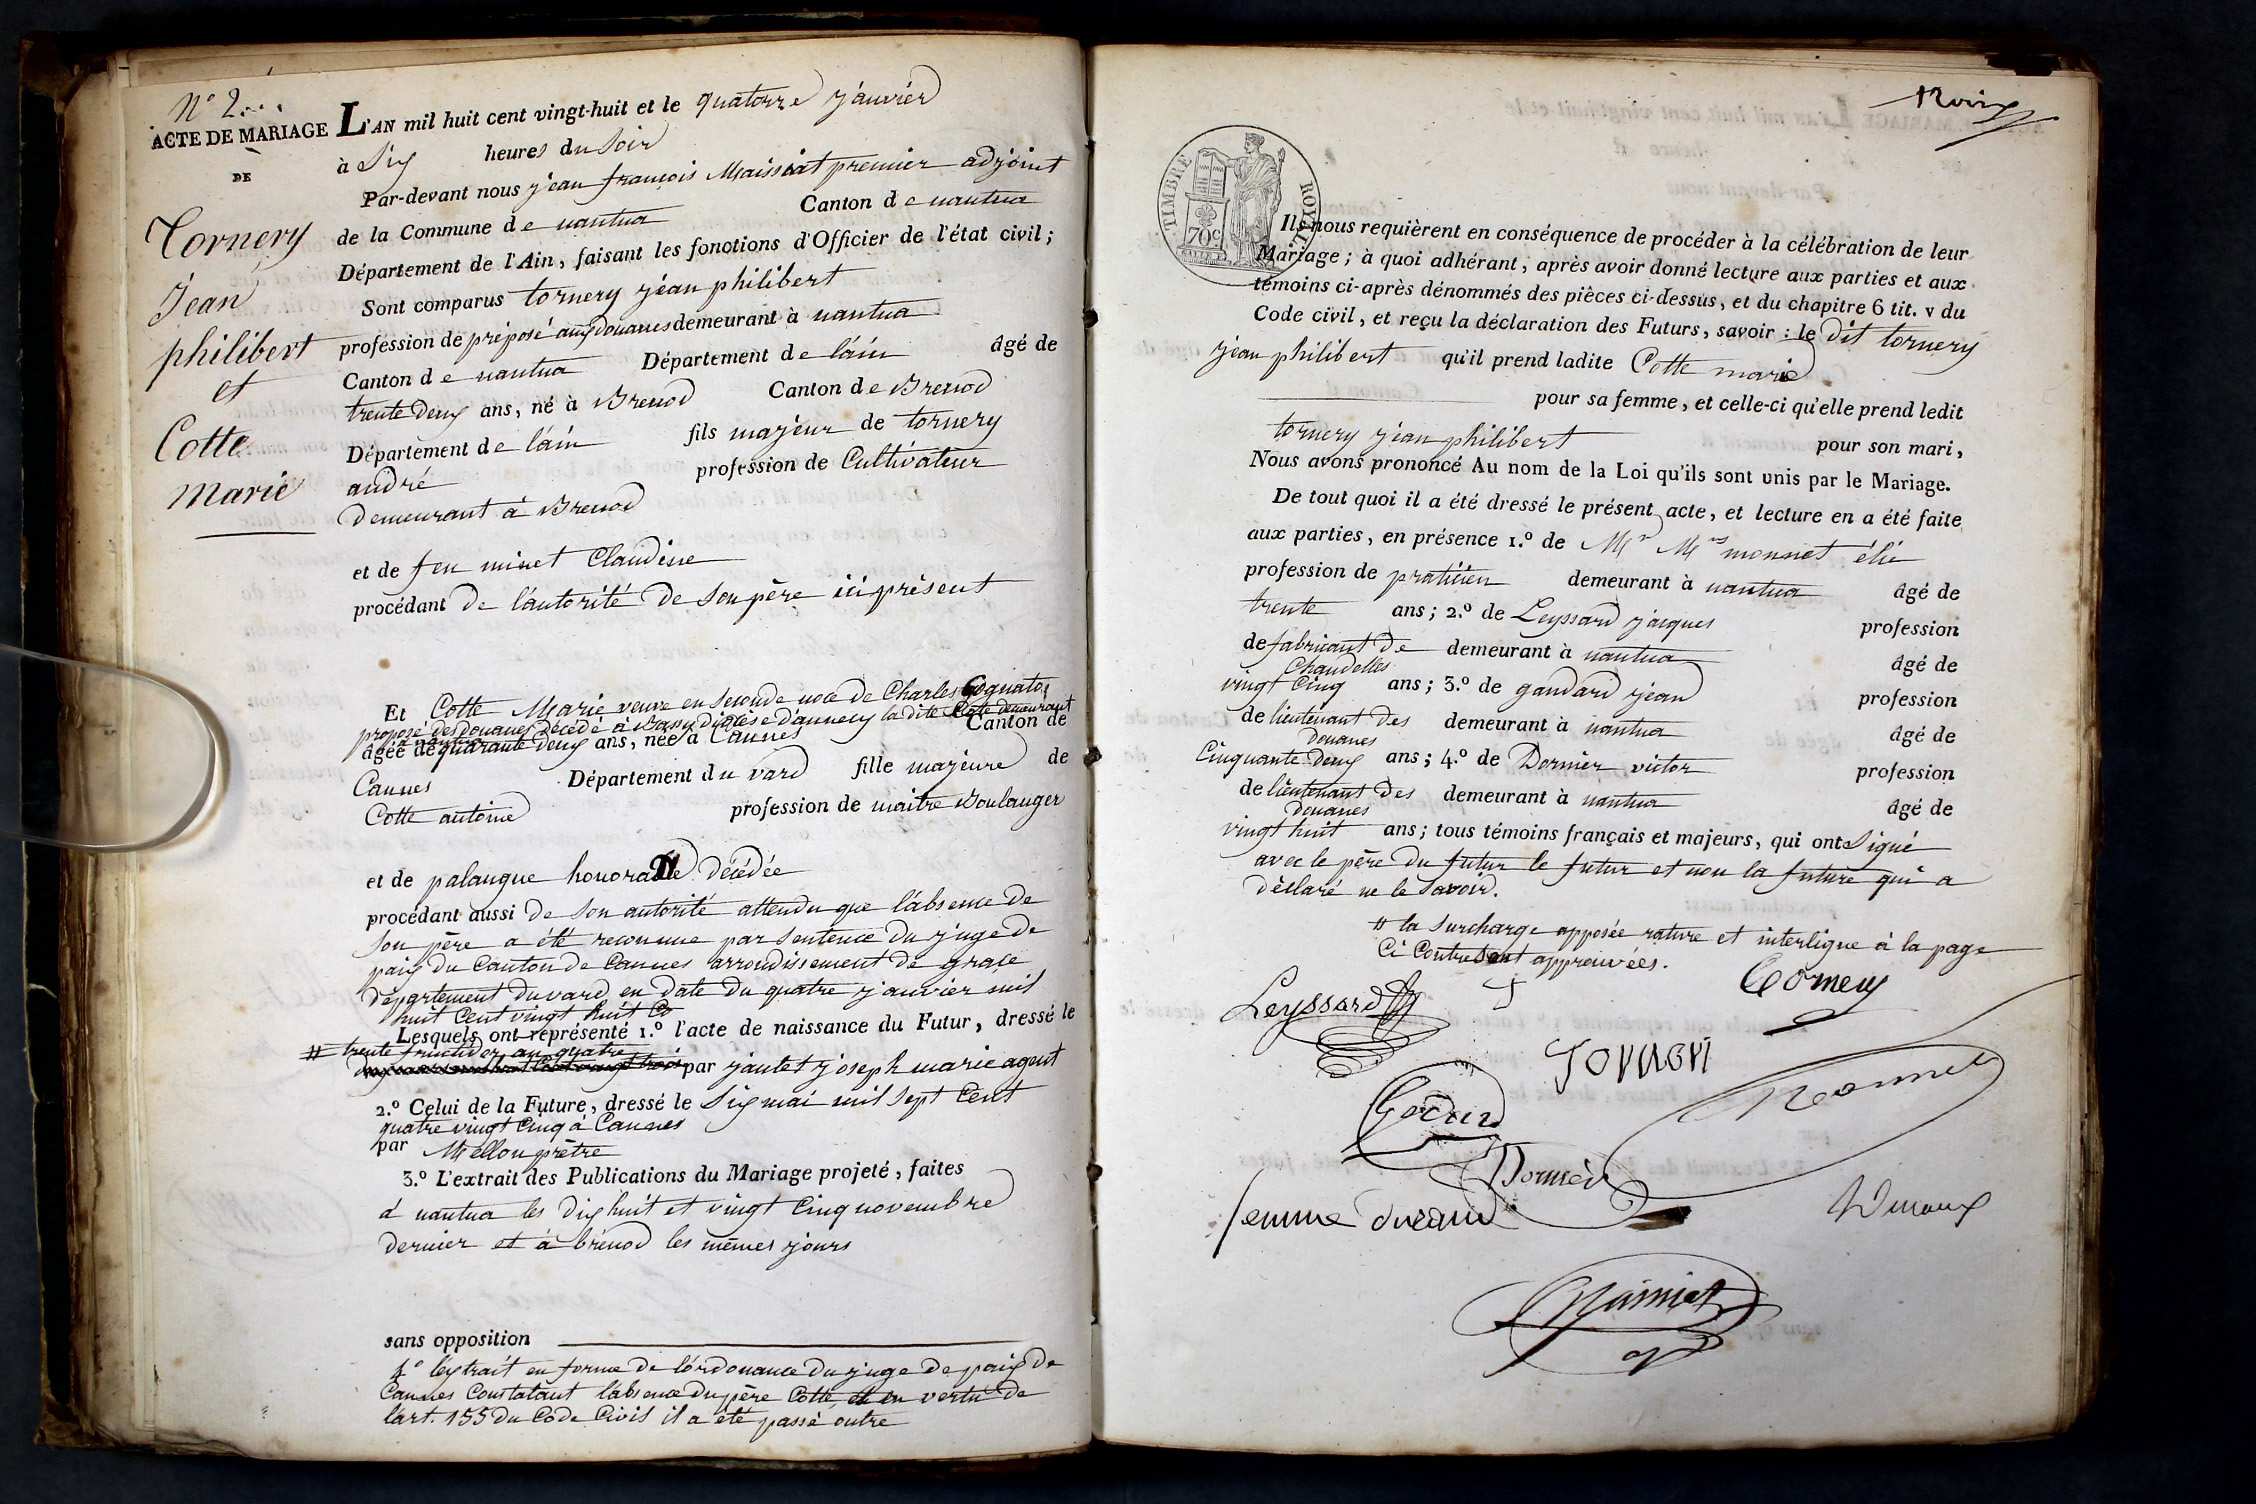 N° 2.
ACTE DE MARIAGE
DE
Tornery
Jean
philibert
et
Cotte
marie
L'AN mil huit cent vingt-huit et le quatorze janvier
à Six heures du Soir
Par-devant nous jean françois Maissiat premier adjoint
de la Commune de nantua Canton de nantua
Département de l'Ain, faisant les fonctions d'Officier de l'état civil;
Sont comparus tornery jean philibert
profession de préposé aux douanes demeurant à nantua
Canton de nantua Département de l'ain âgé de
trente deux ans, né à Brenod Canton de Brenod
Département de l'ain fils majeur de tornery
andré profession de Cultivateur
demeurant à Brenod
et de feu minet Claudine
procédant de l'autorité de son père ici présent
Et Cotte Marie veuve en seconde noce de Charles
préposé des douanes décédé à diocèse d'annecy la dite Cotte demeurant
à nantua
âgée de quarante deux ans, née à Cannes Canton de
Cannes Département du vard fille majeure de
Cotte antoine profession de maitre Boulanger
et de palanque honorade décédée
procédant aussi de son autorité attendu que l'absence de
son père a été reconnue par sentence du juge de
paix du Canton de Cannes arrondissement de grasse
département du vard en date du quatre janvier mil
huit Cent vingt huit
Lesquels ont représenté 1.° l'acte de naissance du Futur, dressé le
# trente fructidor an quatre
par jantet joseph marie agent
2.° Celui de la Future, dressé le Six mai mil sept Cent
quatre vingt Cinq à Cannes
par Mellon prêtre
3.° L'extrait des Publications du Mariage projeté, faites
à nantua les dix huit et vingt Cinq novembre
dernier et à brénod les mêmes jours
sans opposition
4° l'extrait en forme de l'ordonance du juge de paix de
Cannes Constatant l'absence du père Cotte, et en vertu de
l'art. 155 du Code Civil il a été passé outre
trois
TIMBRE ROYAL
70c
Ils nous requièrent en conséquence de procéder à la célébration de leur
Mariage; à quoi adhérant, après avoir donné lecture aux parties et aux
témoins ci-après dénommés des pièces ci-dessus, et du chapitre 6 tit. v du
Code civil, et reçu la déclaration des Futurs, savoir: le dit tornery
jean philibert qu'il prend ladite Cotte marie
pour sa femme, et celle-ci qu'elle prend ledit
tornery jean philibert pour son mari,
Nous avons prononcé Au nom de la Loi qu'ils sont unis par le Mariage.
De tout quoi il a été dressé le présent acte, et lecture en a été faite
aux parties, en présence 1.° de Mr monnet élie
profession de praticien demeurant à nantua âgé de
trente ans; 2.° de Leyssard jacques profession
de fabricant de demeurant à nantua âgé de
Chandelles
vingt Cinq ans; 3.° de gandard jean profession
de lieutenant des demeurant à nantua âgé de
douanes
Cinquante deux ans; 4.° de Dornier victor profession
de lieutenant des demeurant à nantua âgé de
douanes
vingt huit ans; tous témoins français et majeurs, qui ont Signé
avec le père du futur le futur et non la future qui a
déclaré ne le savoir.
# la surcharge apposée rature et interligne à la page
Ci Contre sont approuvées.
Tornery
Leyssard
Dornier
femme durand